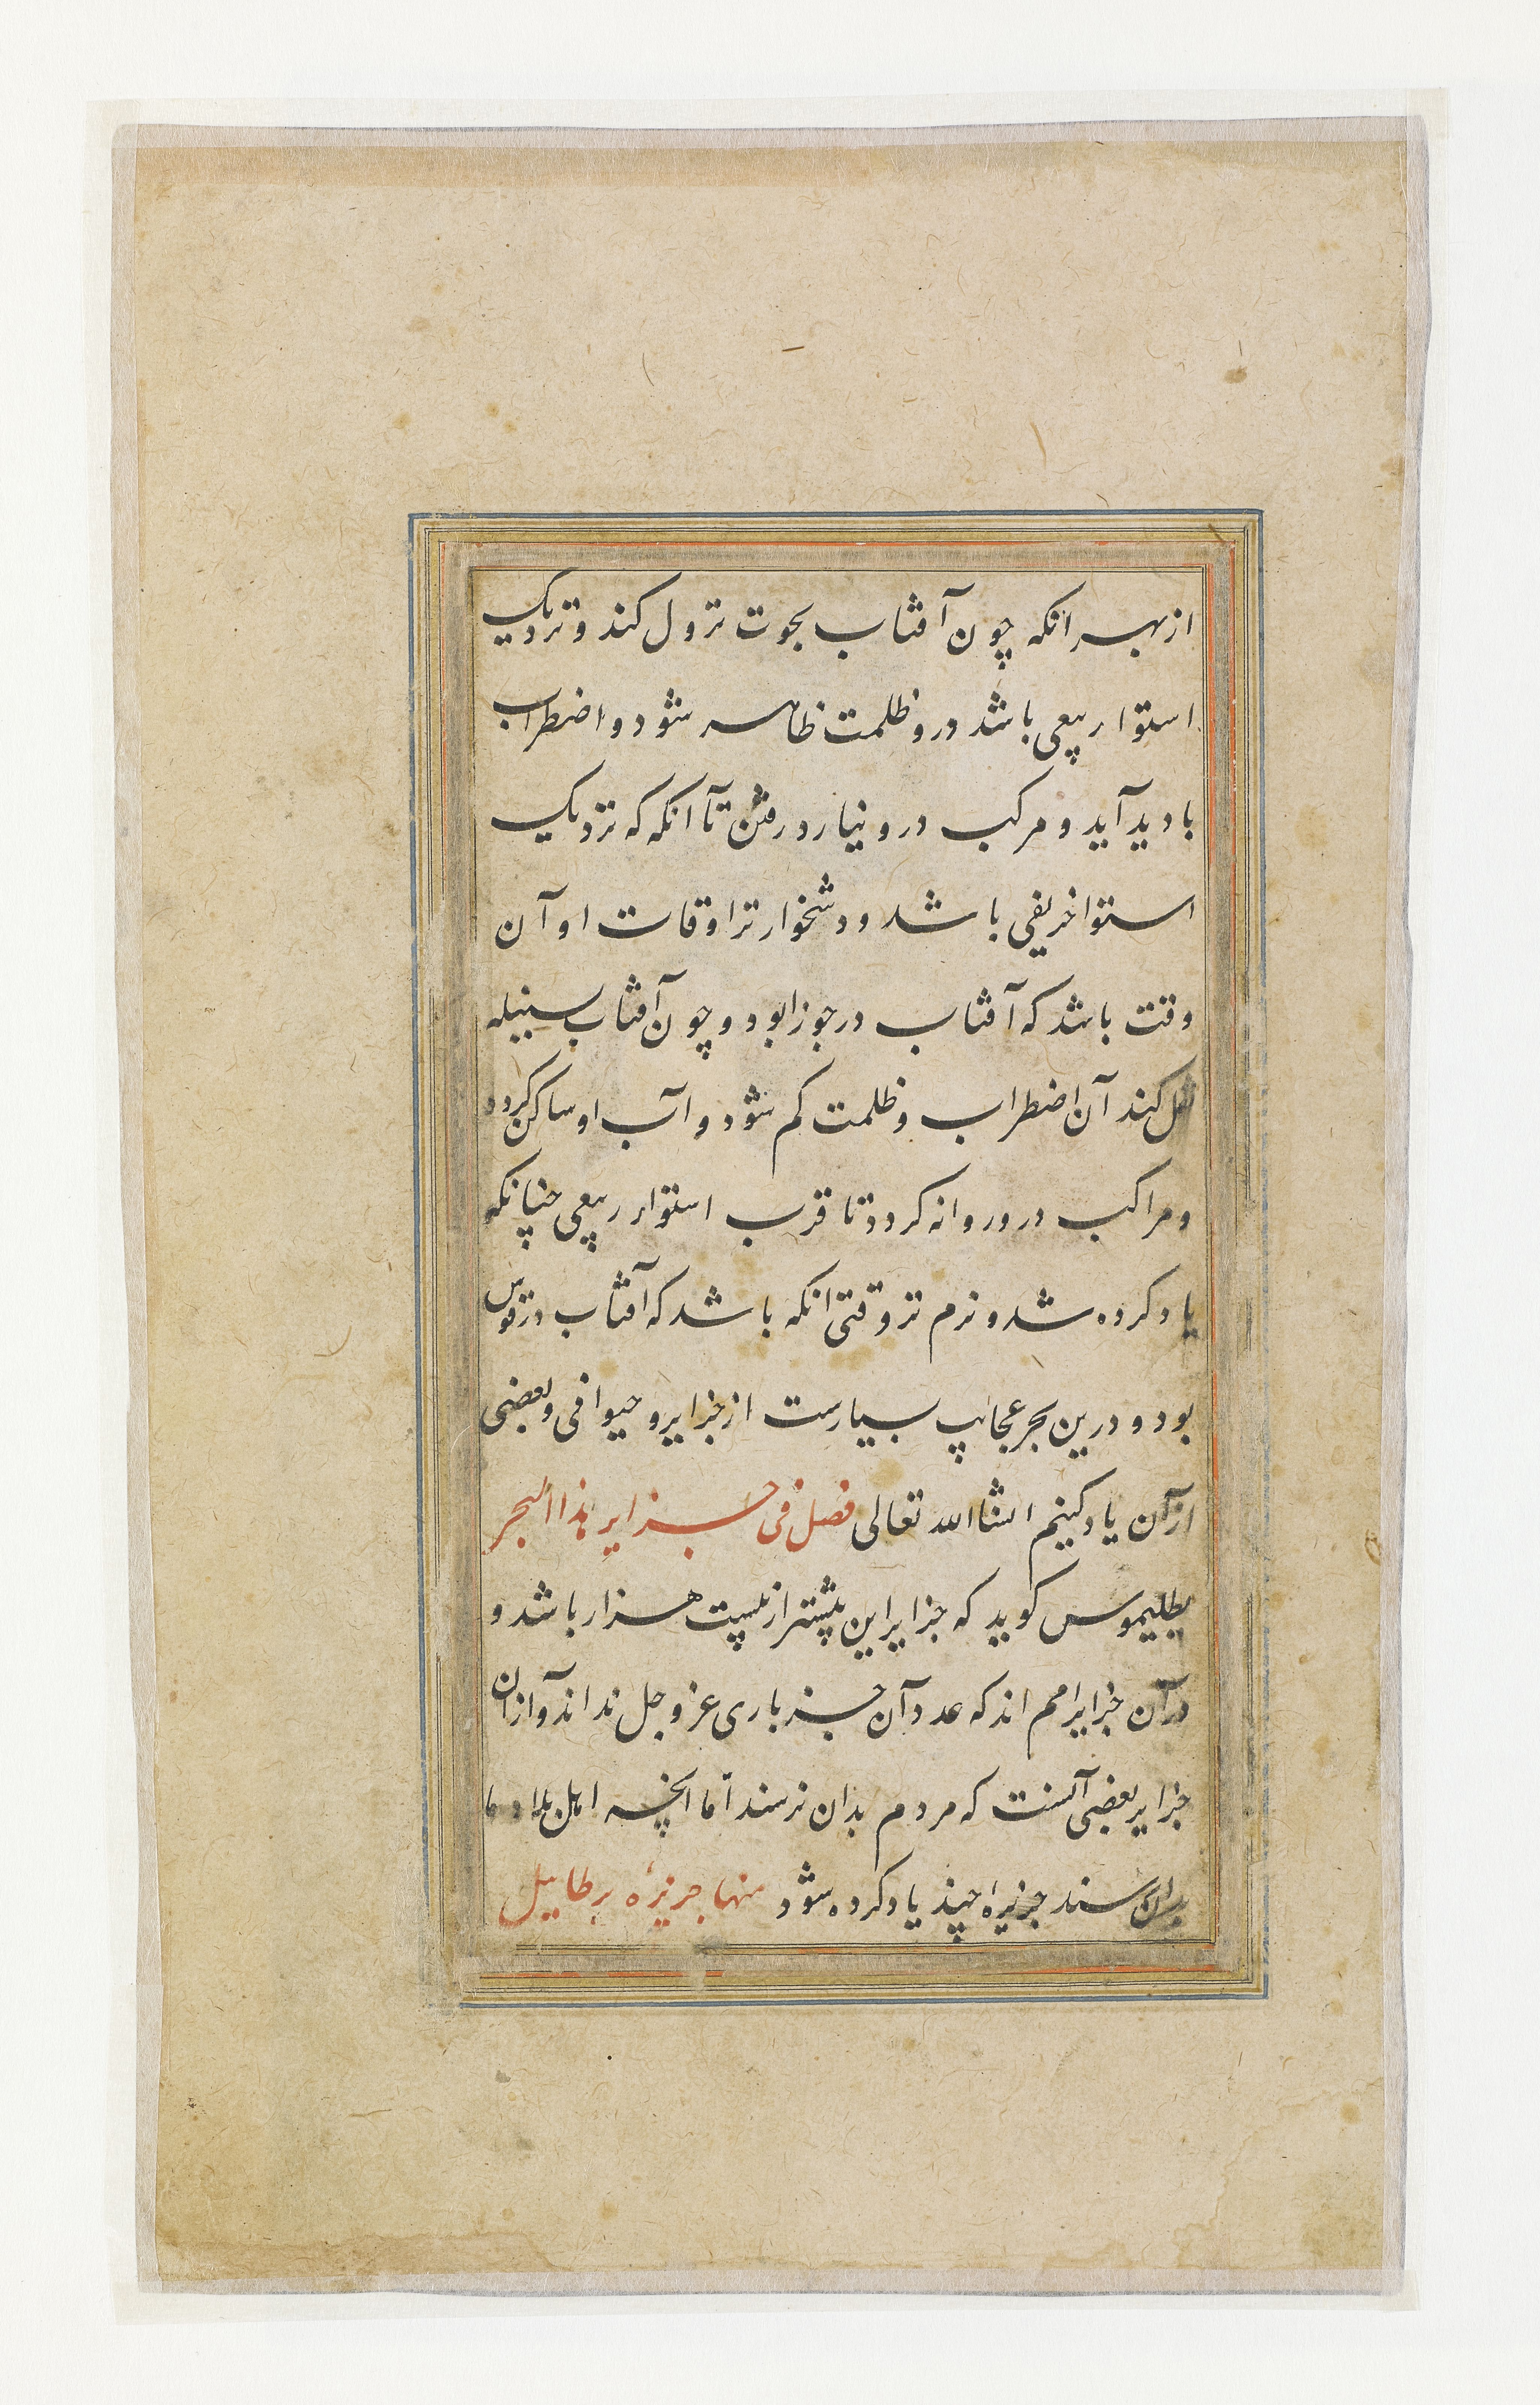 از بهر انکه چون آفتاب بحوت نزول کند و نزدیک
استوا ربیعی باشد درو ظلمت ظاهر شود و اضطراب
بادید آید و مرکب درو نیارد رفتن تا آنکه که نزدیک
استوا خریفی باشد و دشخوارتر اوقات او آن
وقت باشد که آفتاب در جوزا بود و چون آفتاب بسنبله
کند آن اضطراب و ظلمت کم شود و آب او ساکن کردد
و مراکب درو روانه کردد تا قرب استوار ربیعی چنانکه
یاد کرده شد و نرم تر وقتی انکه باشد که آفتاب در قوس
بود و درین بحر عجایب بسیارست از جزایر و حیوانی و بعضی
از آن یاد کنیم انشاالله تعالی فصل فی جزایر هذا البحر
بطلیموس کوید که جزایر این بیشتر از بیست هزار باشد و
در آن جزایر امم اند که عدد آن جز باری عز و جل نداند و از ان
جزایر بعضی آنست که مردم بدان نرسند اما انچه اهل بلاد ما
بدان رسند جزیرهٔ چند یاد کرده شود منها جزیرهٔ برطاییل